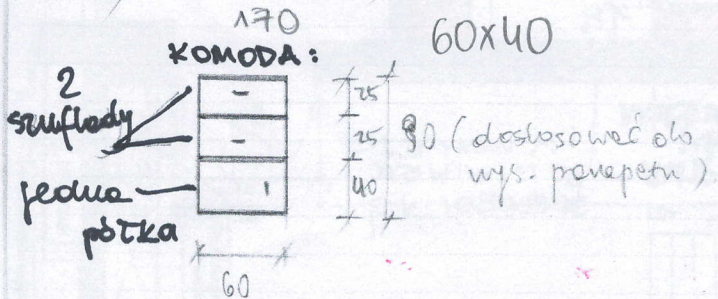 170
KOMODA:
60x40
2
szuflady
jedna
półka
25
25
40
90 (dostosować do
wys. parapetu)
60